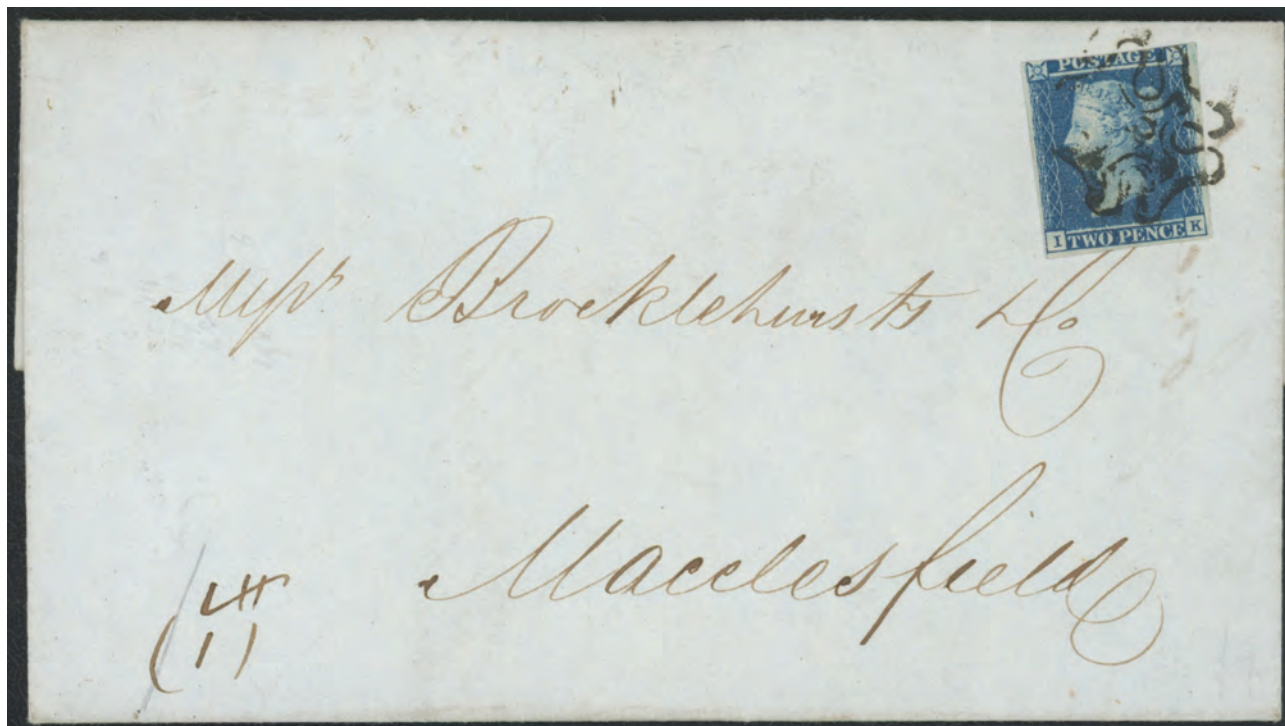 POSTAGE
I TWO PENCE K
Messrs. Brocklehursts & Co
Macclesfield
(1)